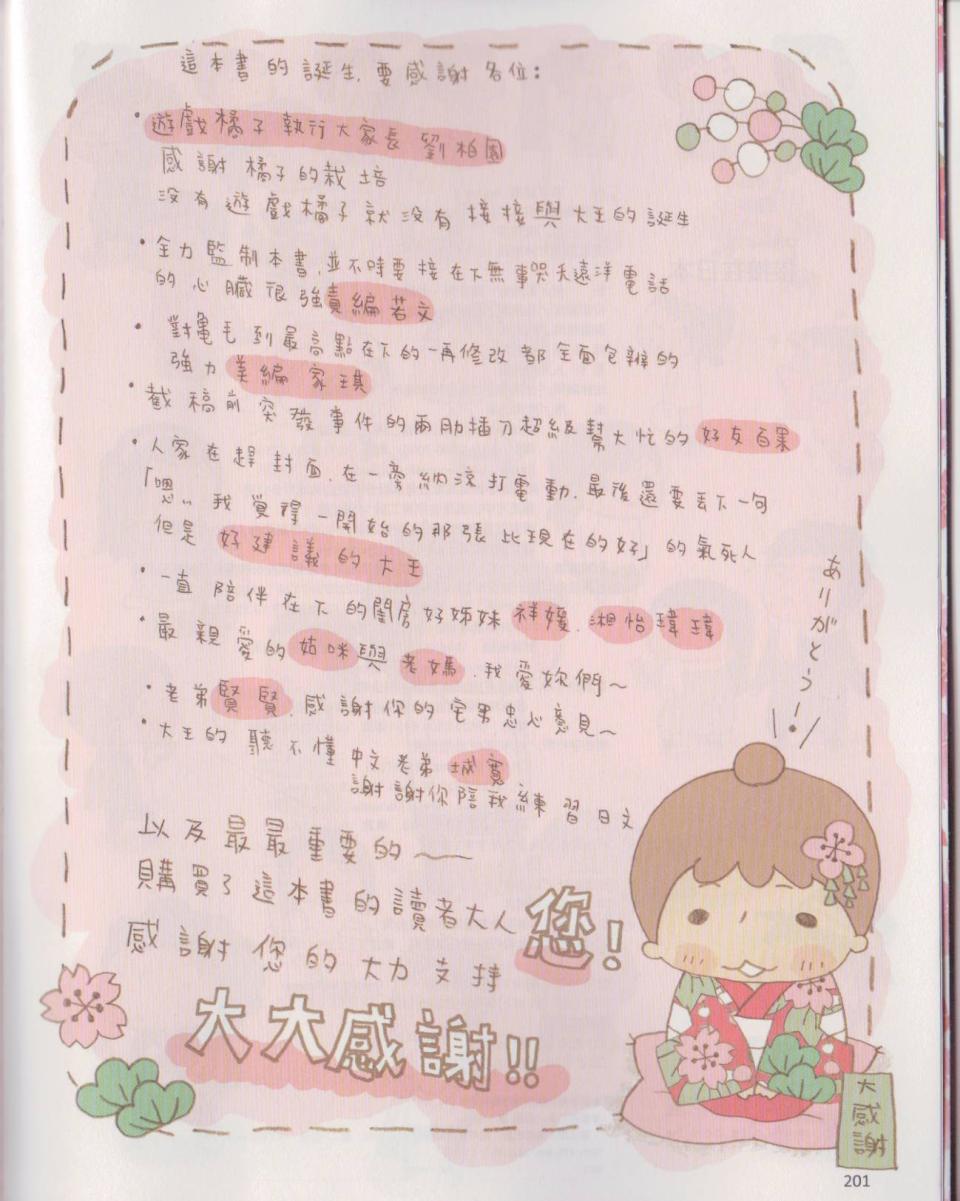 這本書的誕生,要感謝各位:
•遊戲橘子執行大家長 劉柏園
感謝橘子的栽培
沒有遊戲橘子就沒有接接與大王的誕生
•全力監制本書,並不時要接在下無事哭夭遠洋電話
的心臟很強責編若文
•對龜毛到最高點在下的一再修改都全面包辦的
強力美編家琪
•截稿前突發事件的兩肋插刀超級幫大忙的好友百果
•人家在趕封面,在一旁納涼打電動,最後還要丟下一句
「嗯..我覺得一開始的那張比現在的好」的氣死人
但是好建議的大王
•一直陪伴在下的閨房好姊妹祥媛、湘怡瑋瑋
•最親愛的姑咪與老媽,我愛妳們~
•老弟賢賢,感謝你的宅男忠心意見~
•大王的聽不懂中文老弟城寬
謝謝你陪我練習日文
以及最最重要的~
購買了這本書的讀者大人您!
感謝您的大力支持
大大感謝!!
ありがとうー!
大感謝
201